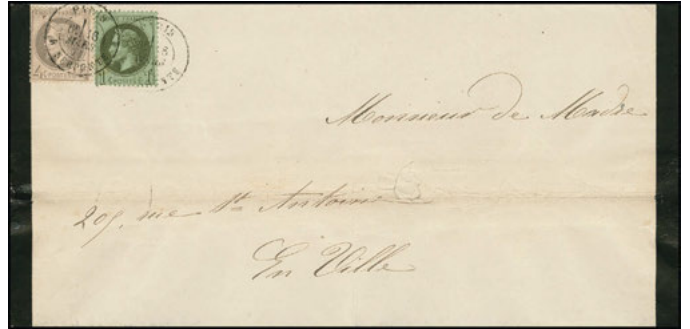 PARIS
Monsieur de Madre
209, rue St Antoine
En Ville